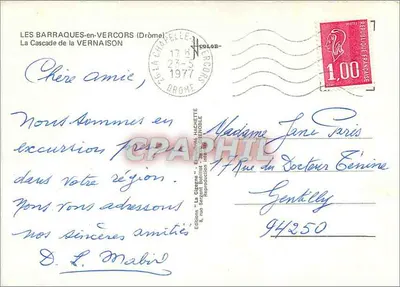 LES BARRAQUES-en-VERCORS (Drôme)
La Cascade de la VERNAISON
LA CHAPELLE
VERCORS
23-5
1977
DROME
1,00
Chère amie,
Nous sommes en
excursion presque
dans votre région.
Nous vous adressons
nos sincères amitiés
D. L. Mabil
Editions "La Cigogne"
HACHETTE
GRENOBLE
Reproduction
CPAPHIL
Madame Jane Paris
17 Rue du Docteur Ténine
Gentilly
94250